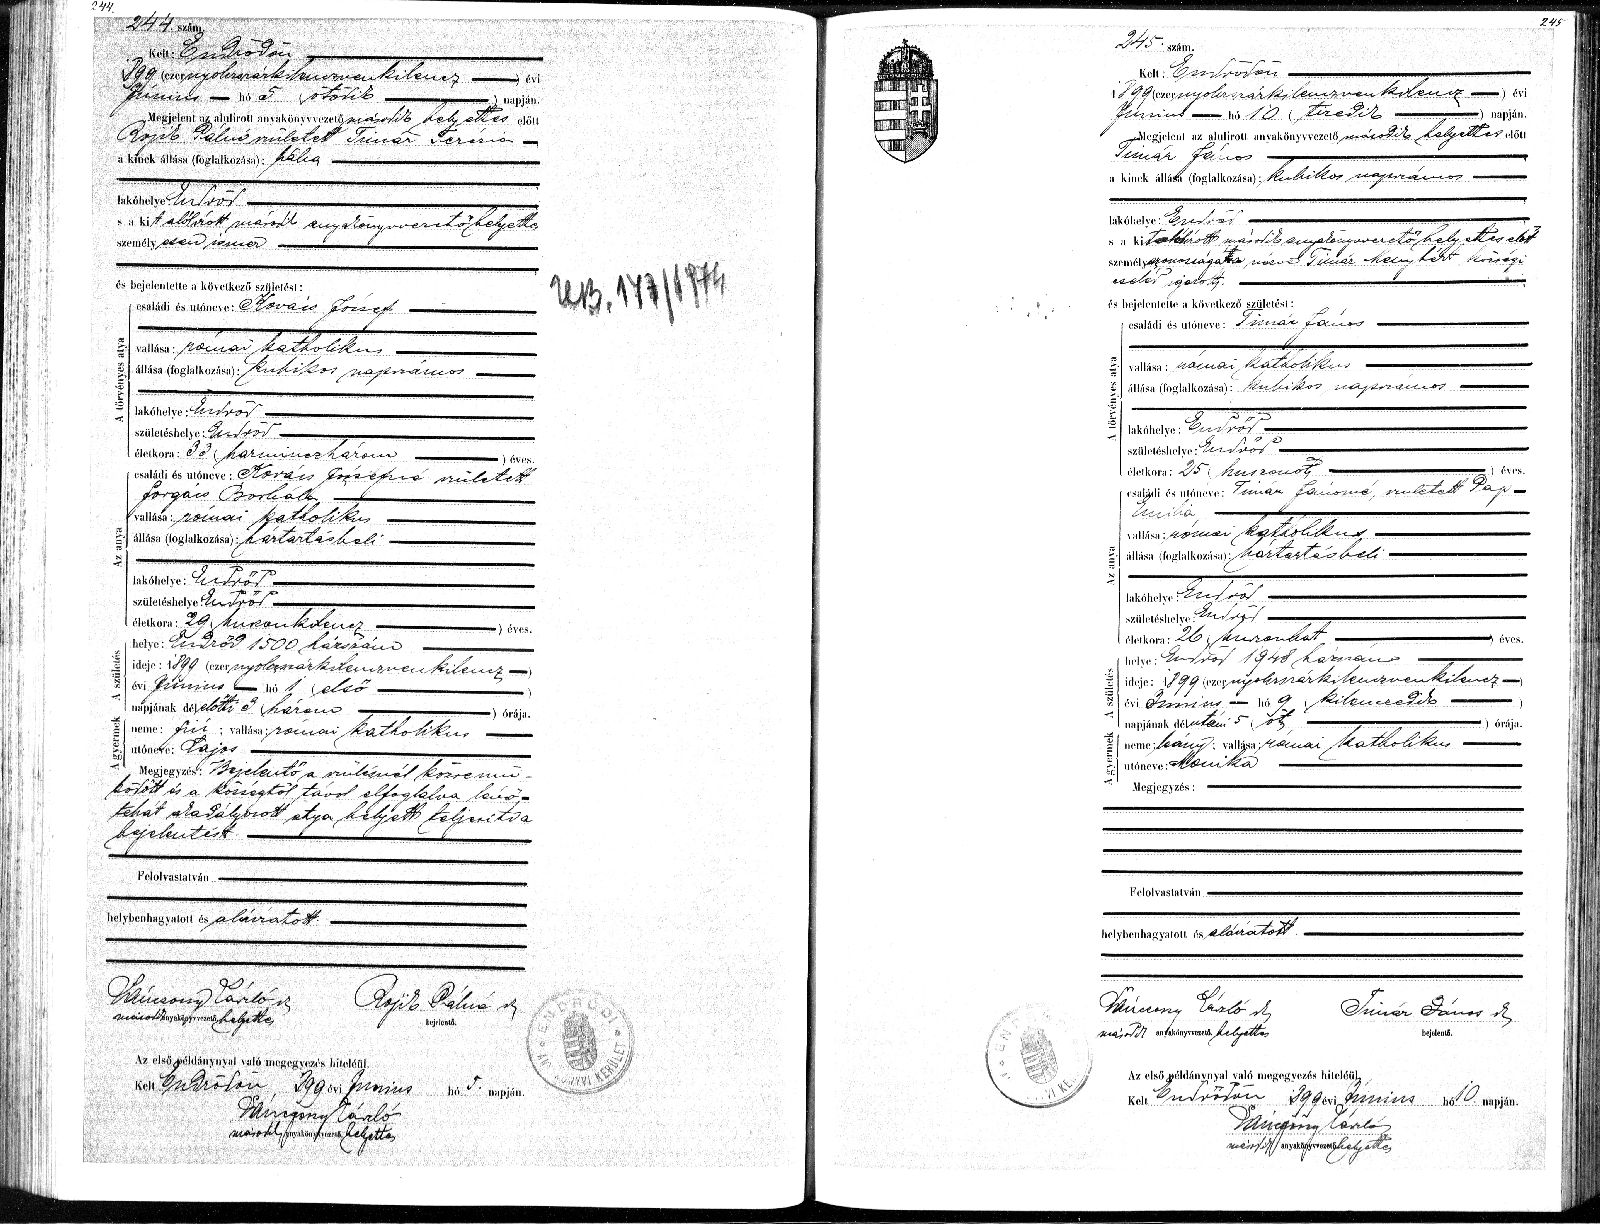 244.
244. szám.
Kelt: Endrődön
1899 (ezernyolcszázkilenczvenkilencz) évi
Június hó 5 (ötödik) napján.
Megjelent az alulirott anyakönyvvezető második helyettes előtt
Rojik Pálné született Timár Terézia
a kinek állása (foglalkozása): bába
lakóhelye Endrőd
s a kit alólírott második anyakönyvvezető helyettes
személyesen ismer
és bejelentette a következő születést:
A törvényes atya
családi és utóneve: Kovács József
vallása: római katholikus
állása (foglalkozása): kubikos napszámos
lakóhelye: Endrőd
születéshelye: Endrőd
életkora: 33 (harminczhárom) éves.
Az anya
családi és utóneve: Kovács Józsefné született
Forgács Borbála
vallása: római katholikus
állása (foglalkozása): háztartásbeli
lakóhelye: Endrőd
születéshelye Endrőd
életkora: 29 (huszonkilencz) éves.
A születés
helye: Endrőd 1500 házszám
ideje: 1899 (ezernyolcszázkilenczvenkilencz)
évi Június hó 1 (első)
napjának délelőtti 3 (három) órája.
A gyermek
neme: fiú; vallása: római katholikus
utóneve: Lajos
Megjegyzés: Bejelentő a szülésnél közremű-
ködött és a községtől távol elfoglalva levő
tehát akadályozott atya helyett teljesítve
bejelentést
Felolvastatván
helybenhagyatott és aláíratott.
László Rojik Pálné
második anyakönyvvezető helyettes bejelentő.
Az első példánynyal való megegyezés hiteléül.
Kelt Endrődön 899 évi Június hó 5. napján.
László
második anyakönyvvezető helyettes
177/1974
245
245. szám.
Kelt: Endrődön
1899 (ezernyolcszázkilenczvenkilencz) évi
Június hó 10 (tizedik) napján.
Megjelent az alulirott anyakönyvvezető második helyettes előtt
Timár János
a kinek állása (foglalkozása): kubikos napszámos
lakóhelye: Endrőd
s a kit alólírott második anyakönyvvezető helyettes előtt
személyazonosságára nézve Timár Menyhért községi
cseléd igazolt.
és bejelentette a következő születést:
A törvényes atya
családi és utóneve: Timár János
vallása: római katholikus
állása (foglalkozása): kubikos napszámos
lakóhelye: Endrőd
születéshelye: Endrőd
életkora: 25 (huszonöt) éves.
Az anya
családi és utóneve: Timár Jánosné, született Pap
Emilia
vallása: római katholikus
állása (foglalkozása): háztartásbeli
lakóhelye Endrőd
születéshelye: Endrőd
életkora: 26 (huszonhat) éves.
A születés
helye: Endrőd 1948 házszám
ideje: 1899 (ezernyolcszázkilenczvenkilencz)
évi Június hó 9 (kilenczedik)
napjának délutáni 5 (öt) órája.
A gyermek
neme: leány; vallása: római katholikus
utóneve: Monika
Megjegyzés:
Felolvastatván
helybenhagyatott és aláíratott.
László Timár János
második anyakönyvvezető helyettes bejelentő.
Az első példánynyal való megegyezés hiteléül.
Kelt Endrődön 899 évi Június hó 10. napján.
László
második anyakönyvvezető helyettes